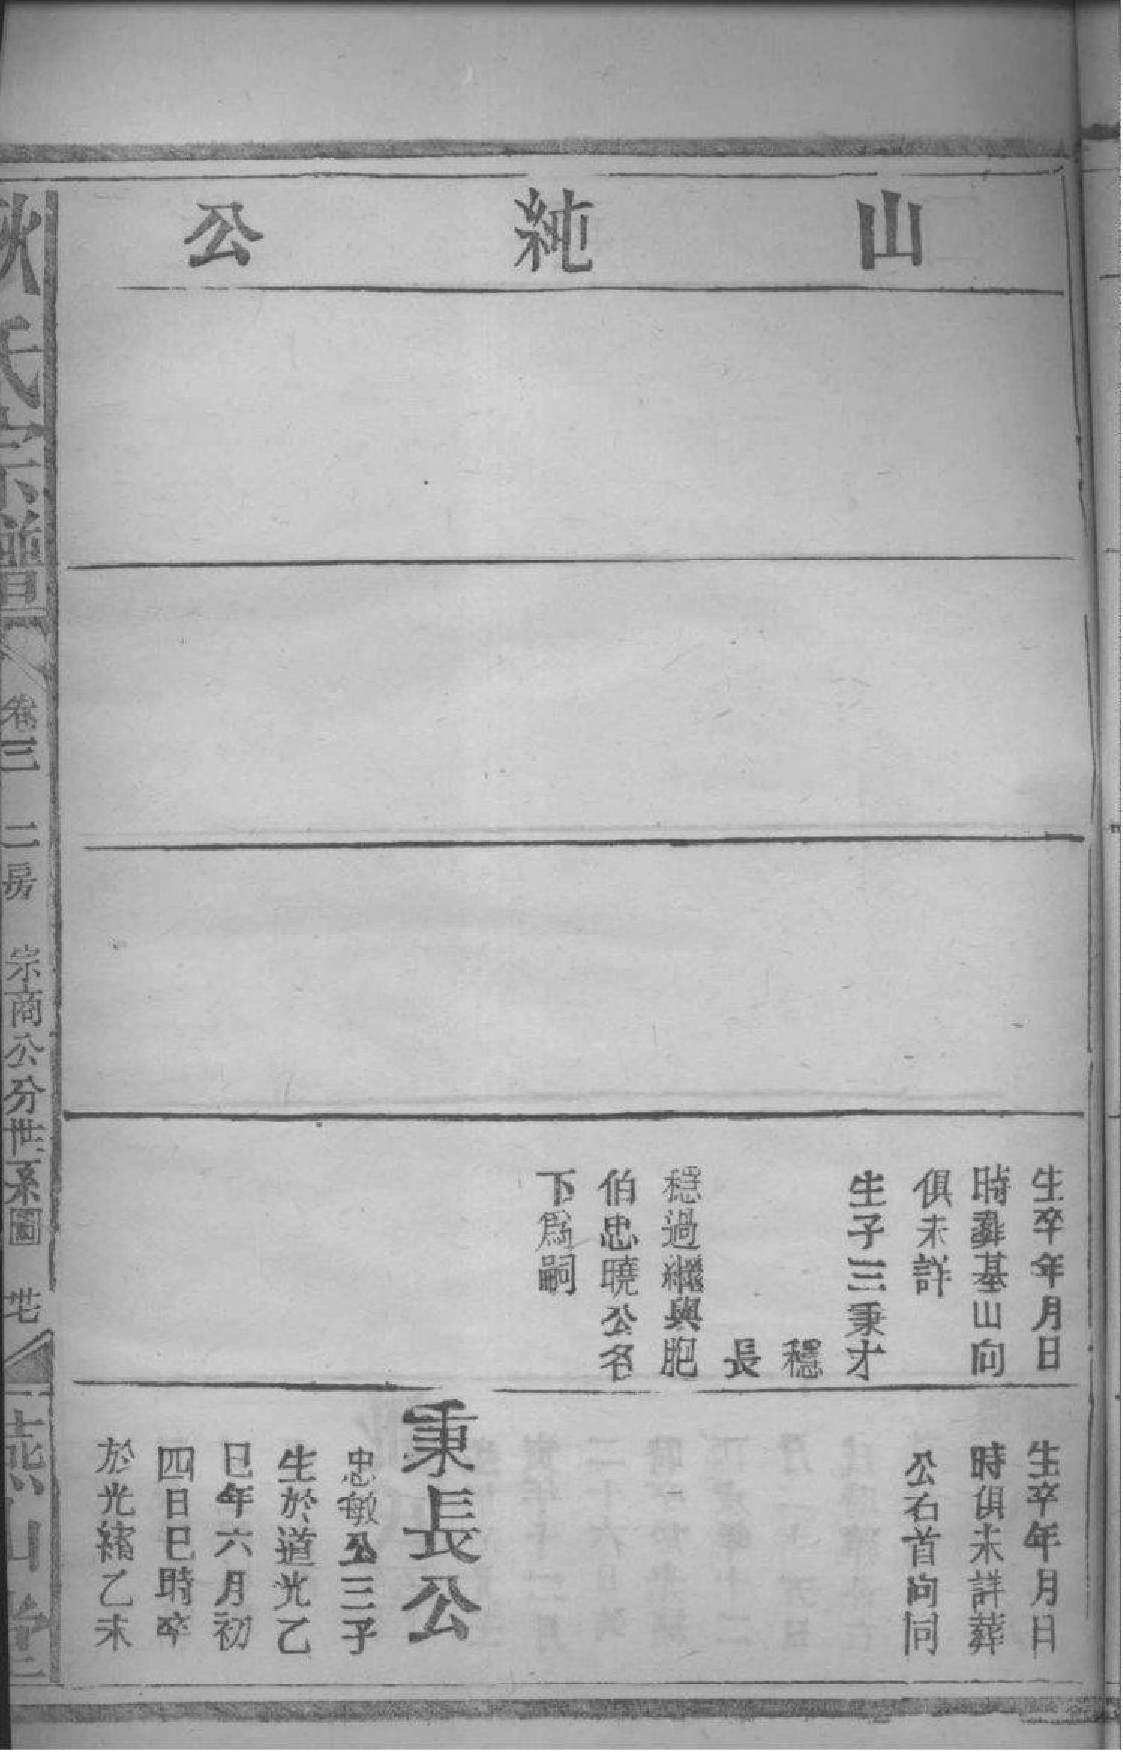 山純公
生卒年月日
時葬基山向
俱未詳
生子三秉才
穩
長
穩過繼與胞
伯忠曉公名
下爲嗣
生卒年月日
時俱未詳葬
公右首向同
秉長公
忠敏公三子
生於道光乙
巳年六月初
四日巳時卒
於光緒乙未
氏宗譜
卷三 二房 宗商公分世系圖